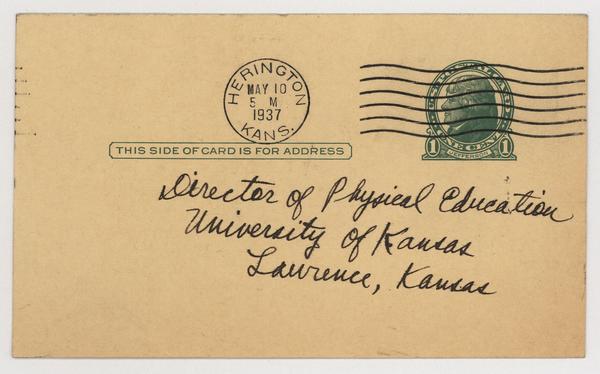 HERINGTON
MAY 10
5 M
1937
KANS.
1 JEFFERSON 1
THIS SIDE OF CARD IS FOR ADDRESS
Director of Physical Education
University of Kansas
Lawrence, Kansas